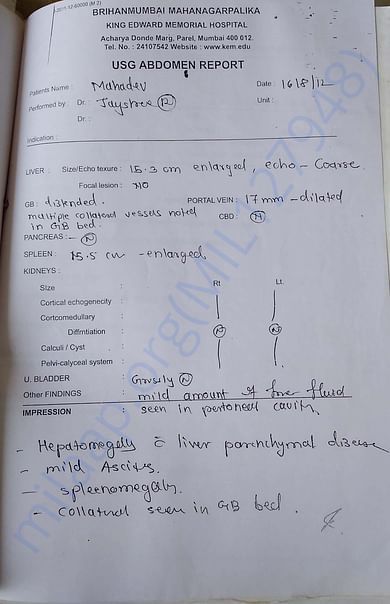 2011-12-60000 (M 2)
BRIHANMUMBAI MAHANAGARPALIKA
KING EDWARD MEMORIAL HOSPITAL
Acharya Donde Marg, Parel, Mumbai 400 012.
Tel. No. : 24107542 Website : www.kem.edu
USG ABDOMEN REPORT
Patients Name : Mahadev Date : 16/8/12
Performed by : Dr. : Jayshree (R) Unit :
Dr. :
Indication :
LIVER : Size/Echo texure : 15.3 cm enlarged, echo - Coarse
Focal lesion : NO
GB : distended. PORTAL VEIN : 17mm - dilated
multiple collateral vessels noted
in GB bed. CBD : (N)
PANCREAS : (N)
SPLEEN : 15.5 cm - enlarged
KIDNEYS :
Rt Lt.
Size :
Cortical echogenecity :
Cortcomedullary :
Diffrntiation : (N) (N)
Calculi / Cyst :
Pelvi-calyceal system :
U. BLADDER : Grossly (N)
Other FINDINGS : mild amount of free fluid
IMPRESSION : seen in peritoneal cavity.
- Hepatomegaly c̄ liver parenchymal disease
- mild Ascites.
- spleenomegaly.
- Collateral seen in GB bed.
milaap.org(MILA27948)